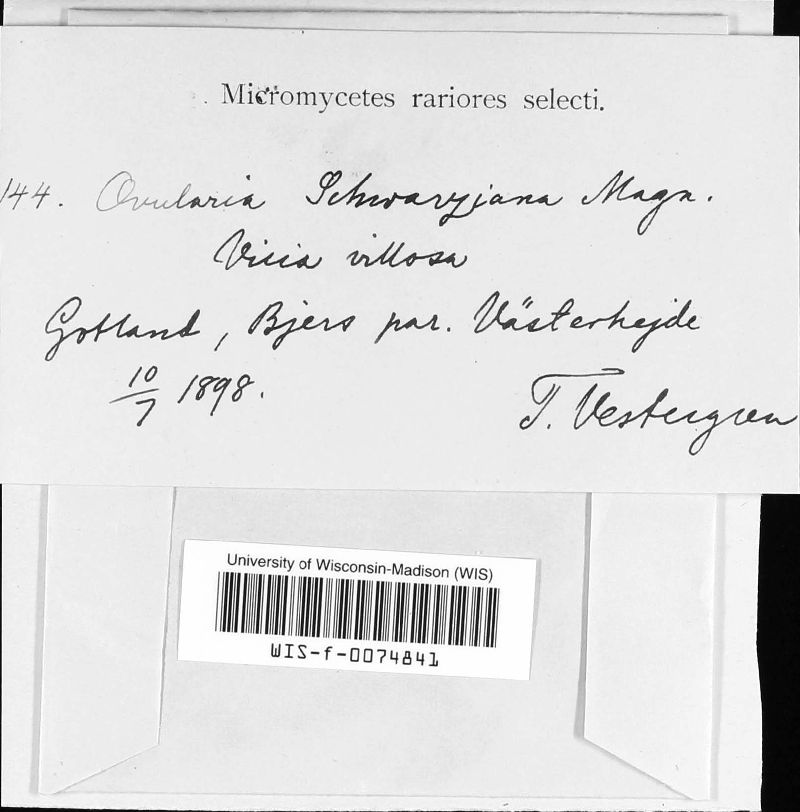 Micromycetes rariores selecti.
144. Ovularia Schwarziana Magn.
Vicia villosa
Gotland, Bjers par. Västerhejde
10/7 1898.
T. Vestergren
University of Wisconsin-Madison (WIS)
WIS-f-0074841